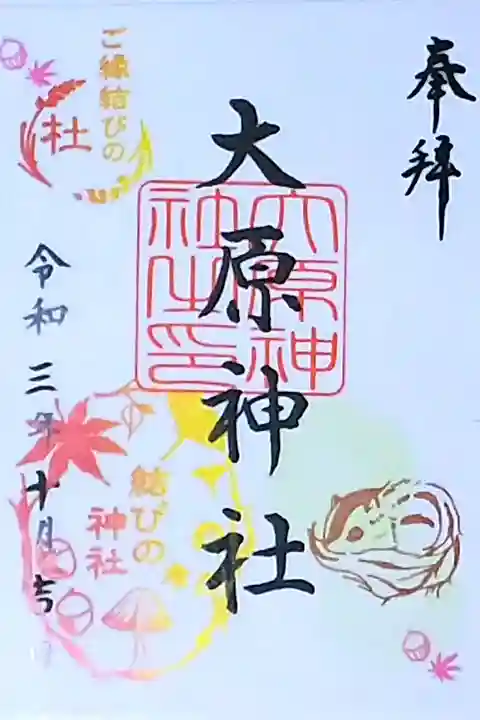 奉拝
大原神社
大原神社之印
ご縁結びの
杜
結びの
神社
令和三年十月吉日